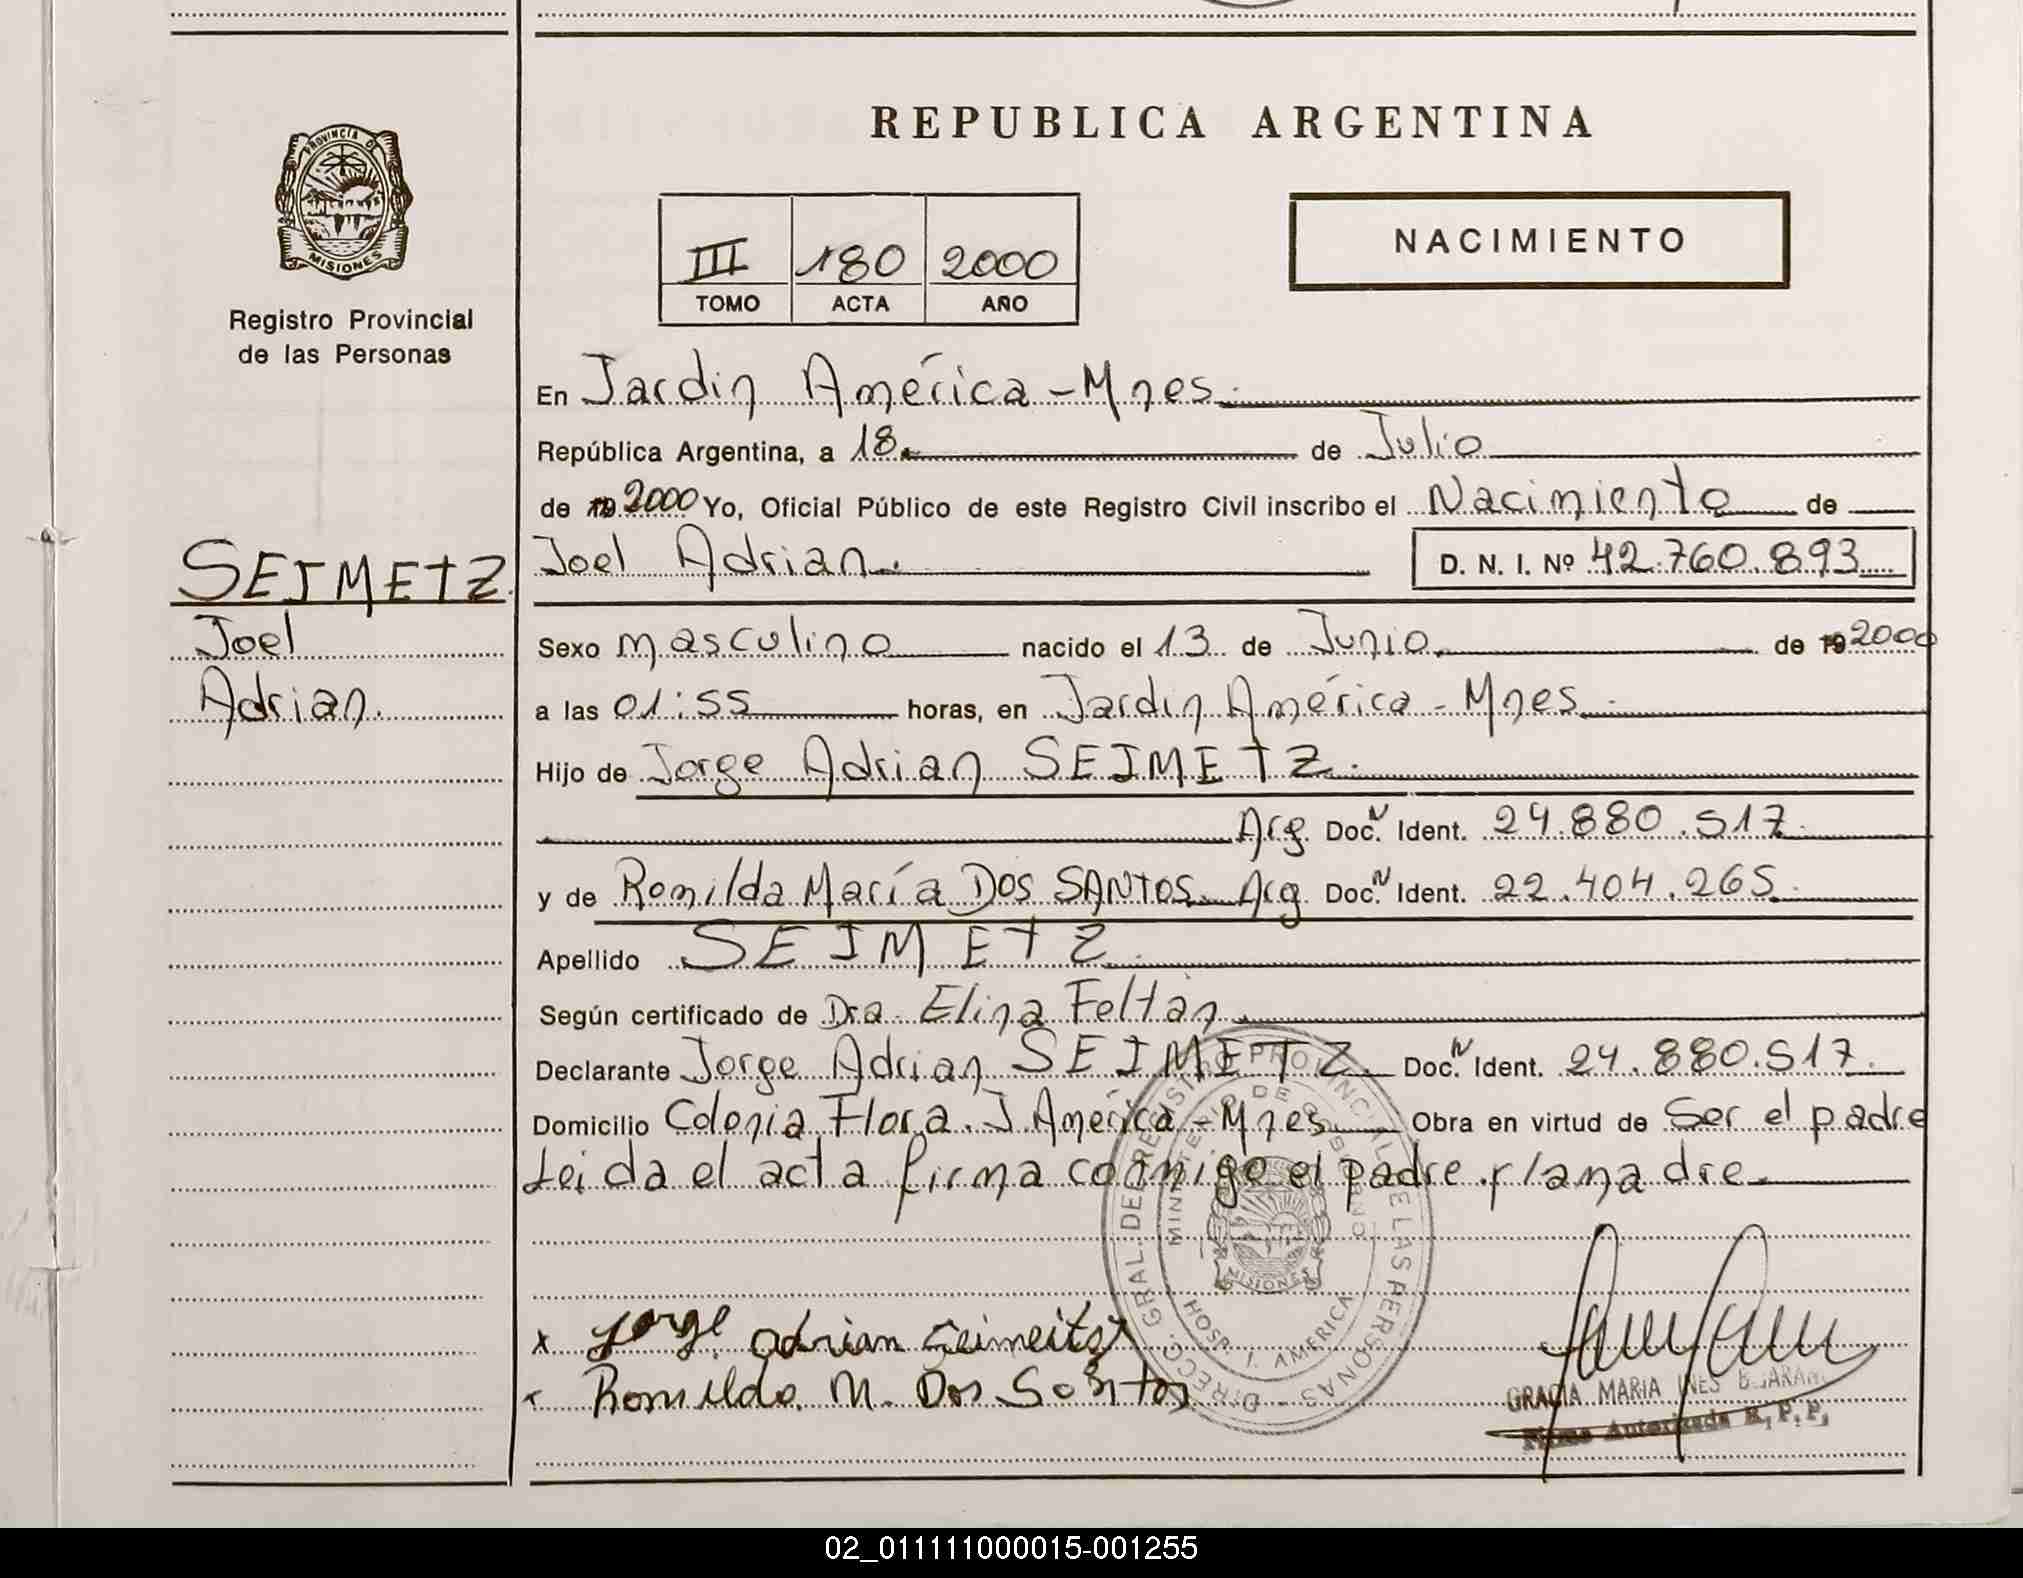 REPUBLICA ARGENTINA
PROVINCIA DE
MISIONES
Registro Provincial
de las Personas
III 180 2000
TOMO ACTA AÑO
NACIMIENTO
En Jardin América - Mnes.
República Argentina, a 18 de Julio
de 19 2000 Yo, Oficial Público de este Registro Civil inscribo el Nacimiento de
Joel Adrian. D. N. I. Nº 42.760.893
SEIMETZ
Joel
Adrian.
Sexo masculino nacido el 13 de Junio de 19 2000
a las 01:55 horas, en Jardin América - Mnes.
Hijo de Jorge Adrian SEIMETZ.
Arg. Doc. N Ident. 24.880.517.
y de Romilda María DOS SANTOS. Arg Doc. N Ident. 22.404.265.
Apellido SEIMETZ.
Según certificado de Dra. Elina Feltan
Declarante Jorge Adrian SEIMETZ Doc. N Ident. 24.880.517.
Domicilio Colonia Flora. J. América - Mnes Obra en virtud de Ser el padre
Leida el acta firma conmigo el padre y la madre
DIRECC. GRAL. DEL REGISTRO PROVINCIAL DE LAS PERSONAS
MINISTERIO DE GOBIERNO
MISIONES
HOSP. J. AMERICA
x Jorge adrian Seimeitz
x Romilda M. Dos Santos
GRACIA MARIA INES BEJARANO
Firma Autorizada R.P.P.
02_011111000015-001255